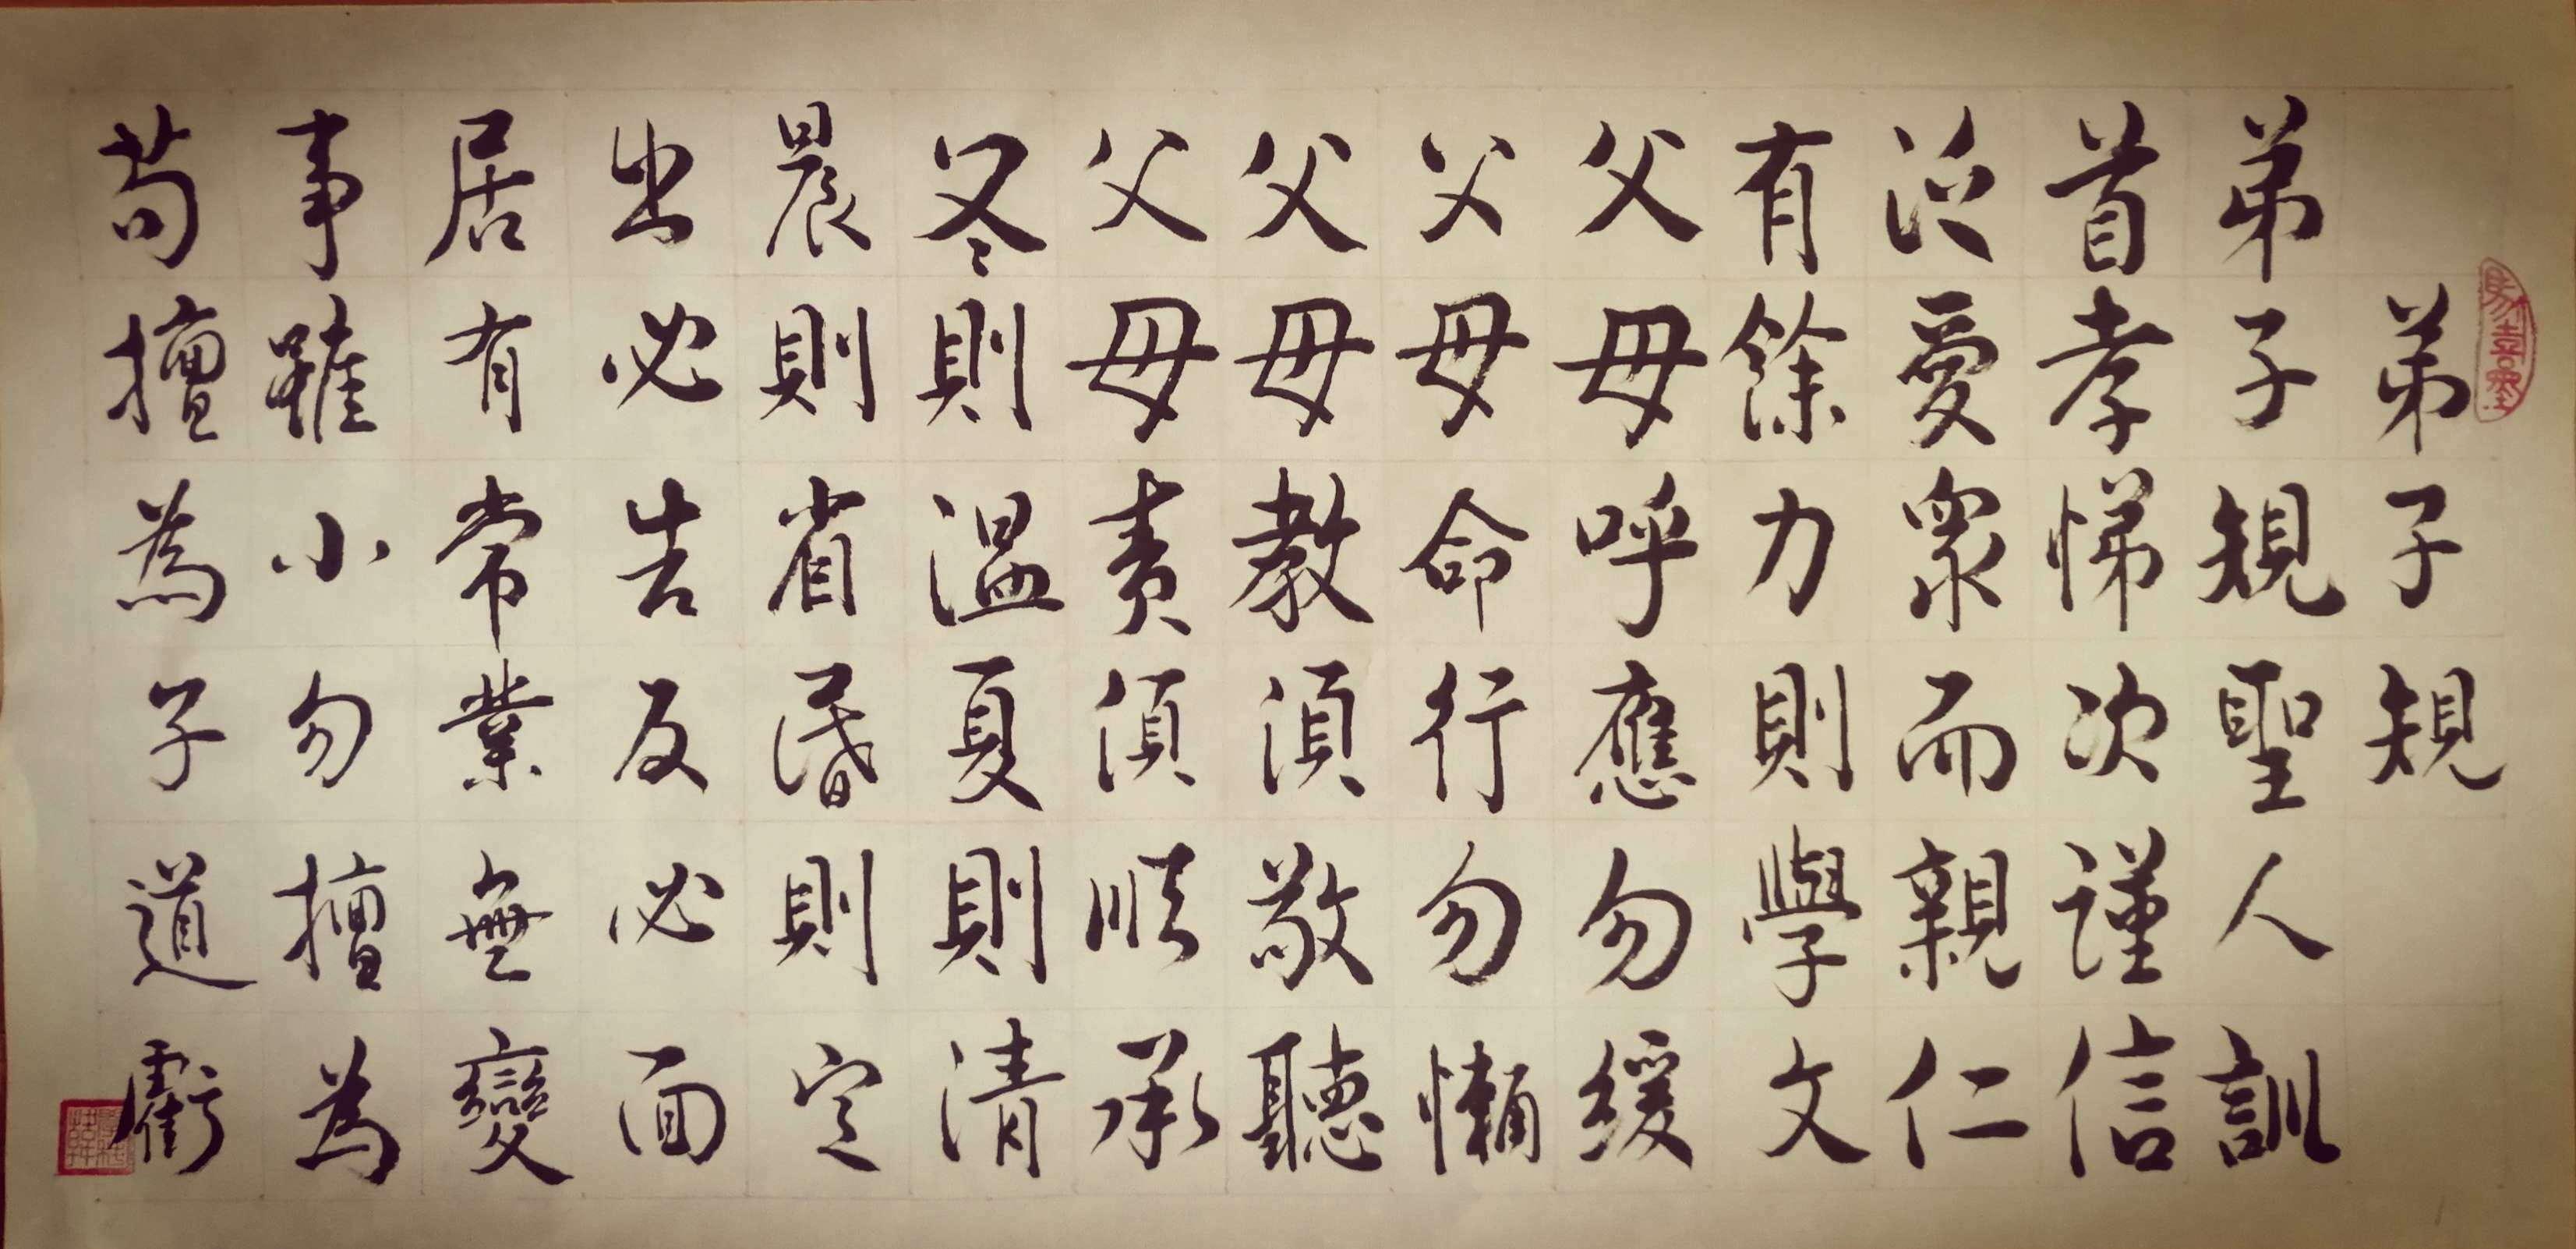 弟子規
弟子規聖人訓
首孝悌次謹信
泛愛眾而親仁
有餘力則學文
父母呼應勿緩
父母命行勿懶
父母教須敬聽
父母責須順承
冬則溫夏則清
晨則省昏則定
出必告反必面
居有常業無變
事雖小勿擅為
苟擅為子道虧